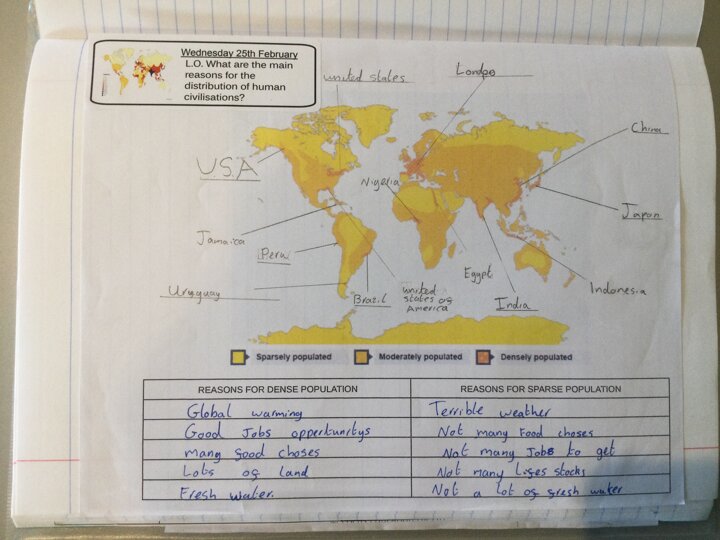 Wednesday 25th February
L.O. What are the main
reasons for the
distribution of human
civilisations?
united states
Londpo
China
U.S.A
Nigeria
Japan
Jamaica
Peru
Egypt
Uruguay
Brazil
united
states of
America
India
Indonesia
Sparsely populated
Moderately populated
Densely populated
REASONS FOR DENSE POPULATION
REASONS FOR SPARSE POPULATION
Global warming
Terrible weather
Good Jobs oppertunitys
Not many Food choses
many good choses
Not many Jobs to get
Lots of land
Not many lifes stocks
Fresh water.
Not a lot of fresh water